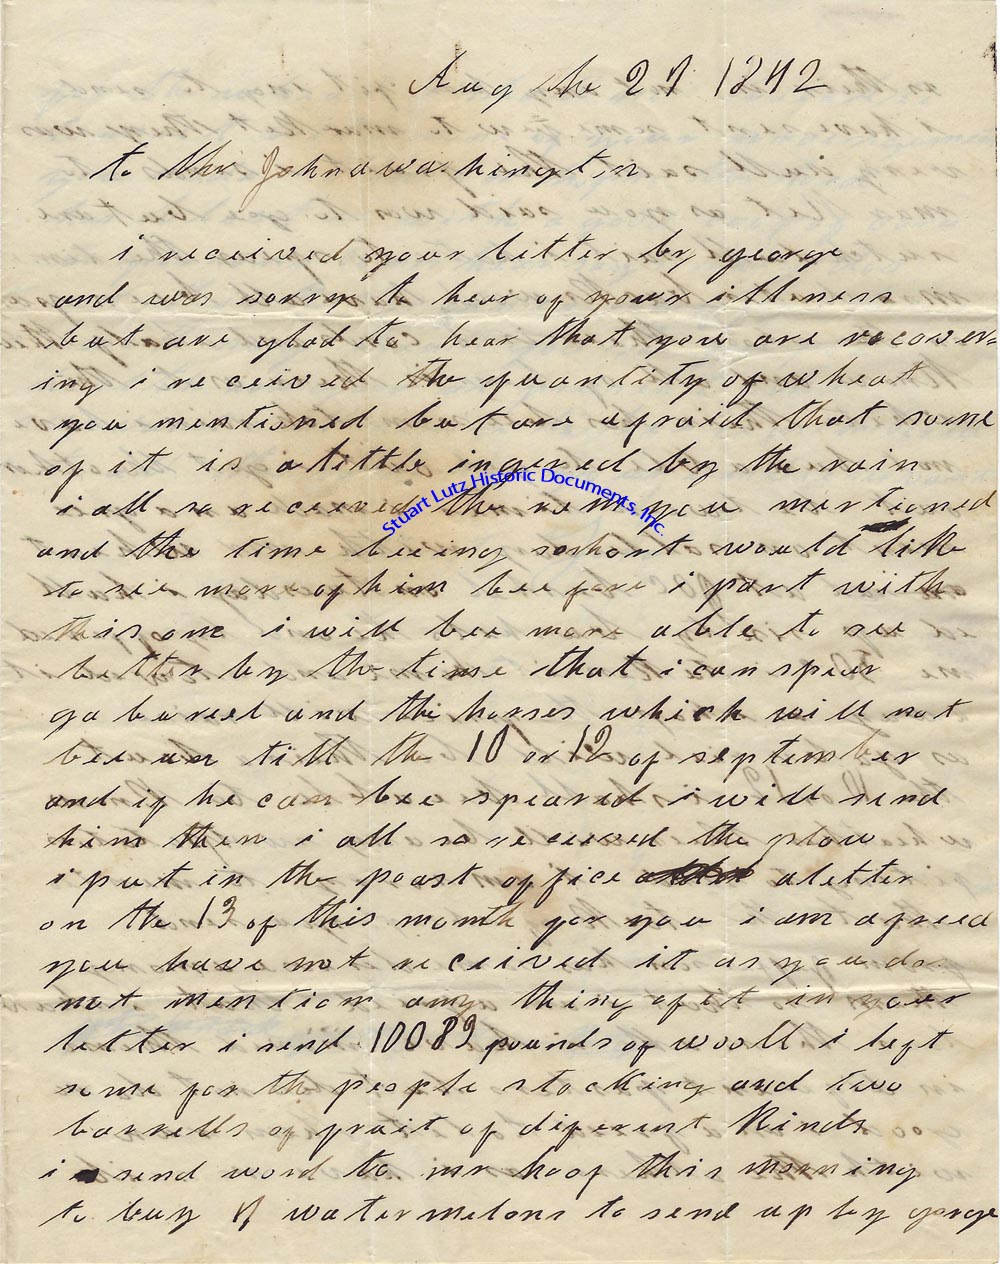 Aug the 27 1842
to Mr John a washington
i received your letter by george
and was sorry to hear of your illness
but are glad to hear that you are recover=
ing i received the quantity of wheat
you mentioned but are afraid that some
of it is a little ingered by the rain
i all so received the you mentioned
and the time beeing so short would like
to see more of him bee fore i part with
this one i will bee more able to see
better by the time that i can spear
gabereel and the horses which will not
bee till the 10 or 12 of september
and if he can bee speared i will send
him then i all so received the plow
i put in the poast office a letter
on the 13 of this month for you i am afreed
you have not received it as you do
not mention any thing of it in your
letter i send 10089 pounds of wooll i left
some for the people stocking and two
barrells of fruit of diferent kinds
i send word to mr hoof this morning
to buy watermelons to send up by george
Stuart Lutz Historic Documents, Inc.